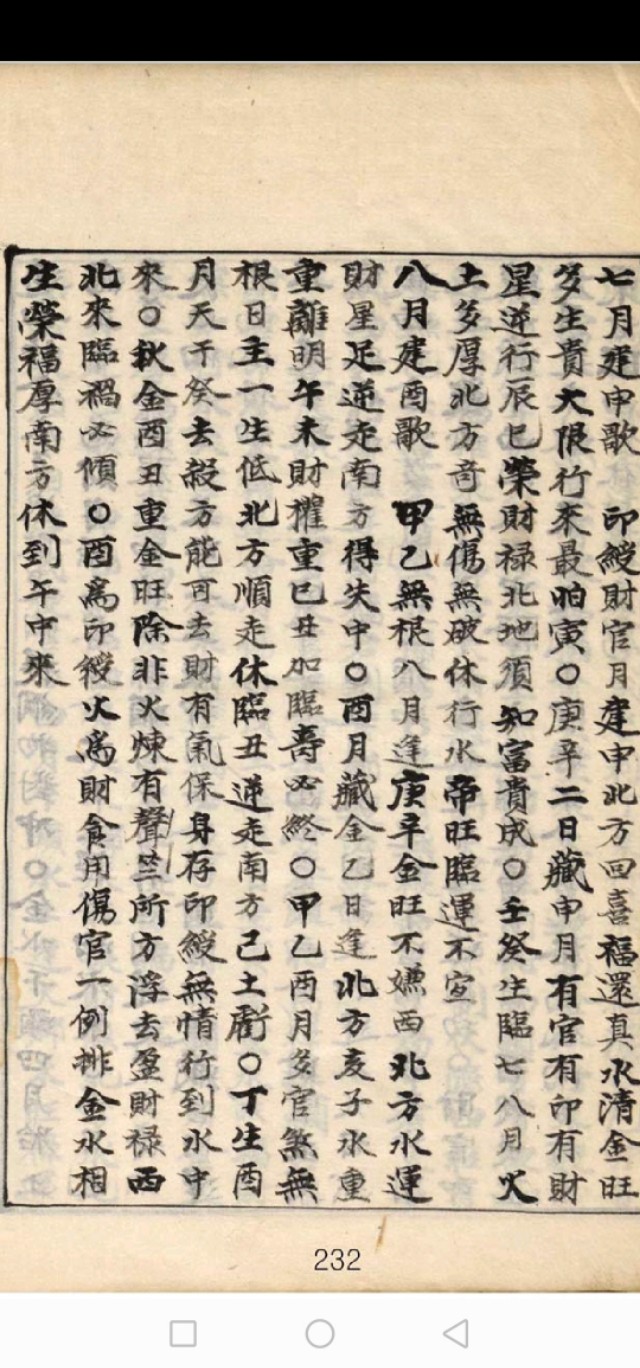 七月建申歌　印綬財官月建申北方回喜福還真水清金旺
多生貴大限行來最怕寅〇庚辛二日藏申月有官有印有財
星逆行辰巳榮財祿北地須知富貴成〇壬癸生臨七八月火
土多厚北方奇無傷無破休行水帝旺臨運不宜
八月建酉歌　甲乙無根八月逢庚辛金旺不嫌西北方水運
財星足逆走南方得失中〇酉月藏金乙日逢北方亥子水重
重離明午未財權重巳丑加臨壽必終〇甲乙酉月多官煞無
根日主一生低北方順走休臨丑逆走南方己土虧〇丁生酉
月天干癸去殺方能可去財有氣保身存印綬無情行到水中
來〇秋金酉丑重金旺除非火煉有聲竺所方浮去盈財祿西
北來臨禍必傾〇酉爲印綬火爲財食用傷官一例排金水相
生榮福厚南方休到午中來
232